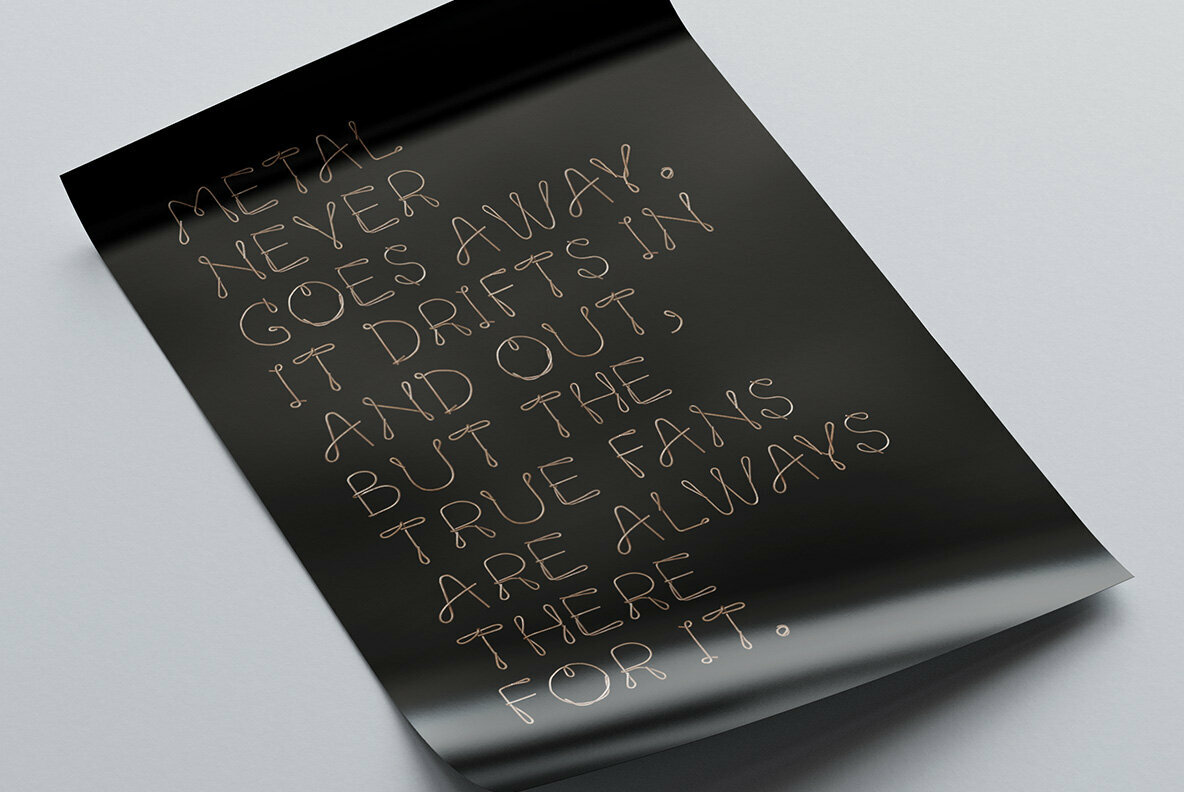 METAL
NEVER
GOES AWAY.
IT DRIFTS IN
AND OUT,
BUT THE
TRUE FANS
ARE ALWAYS
THERE
FOR IT.